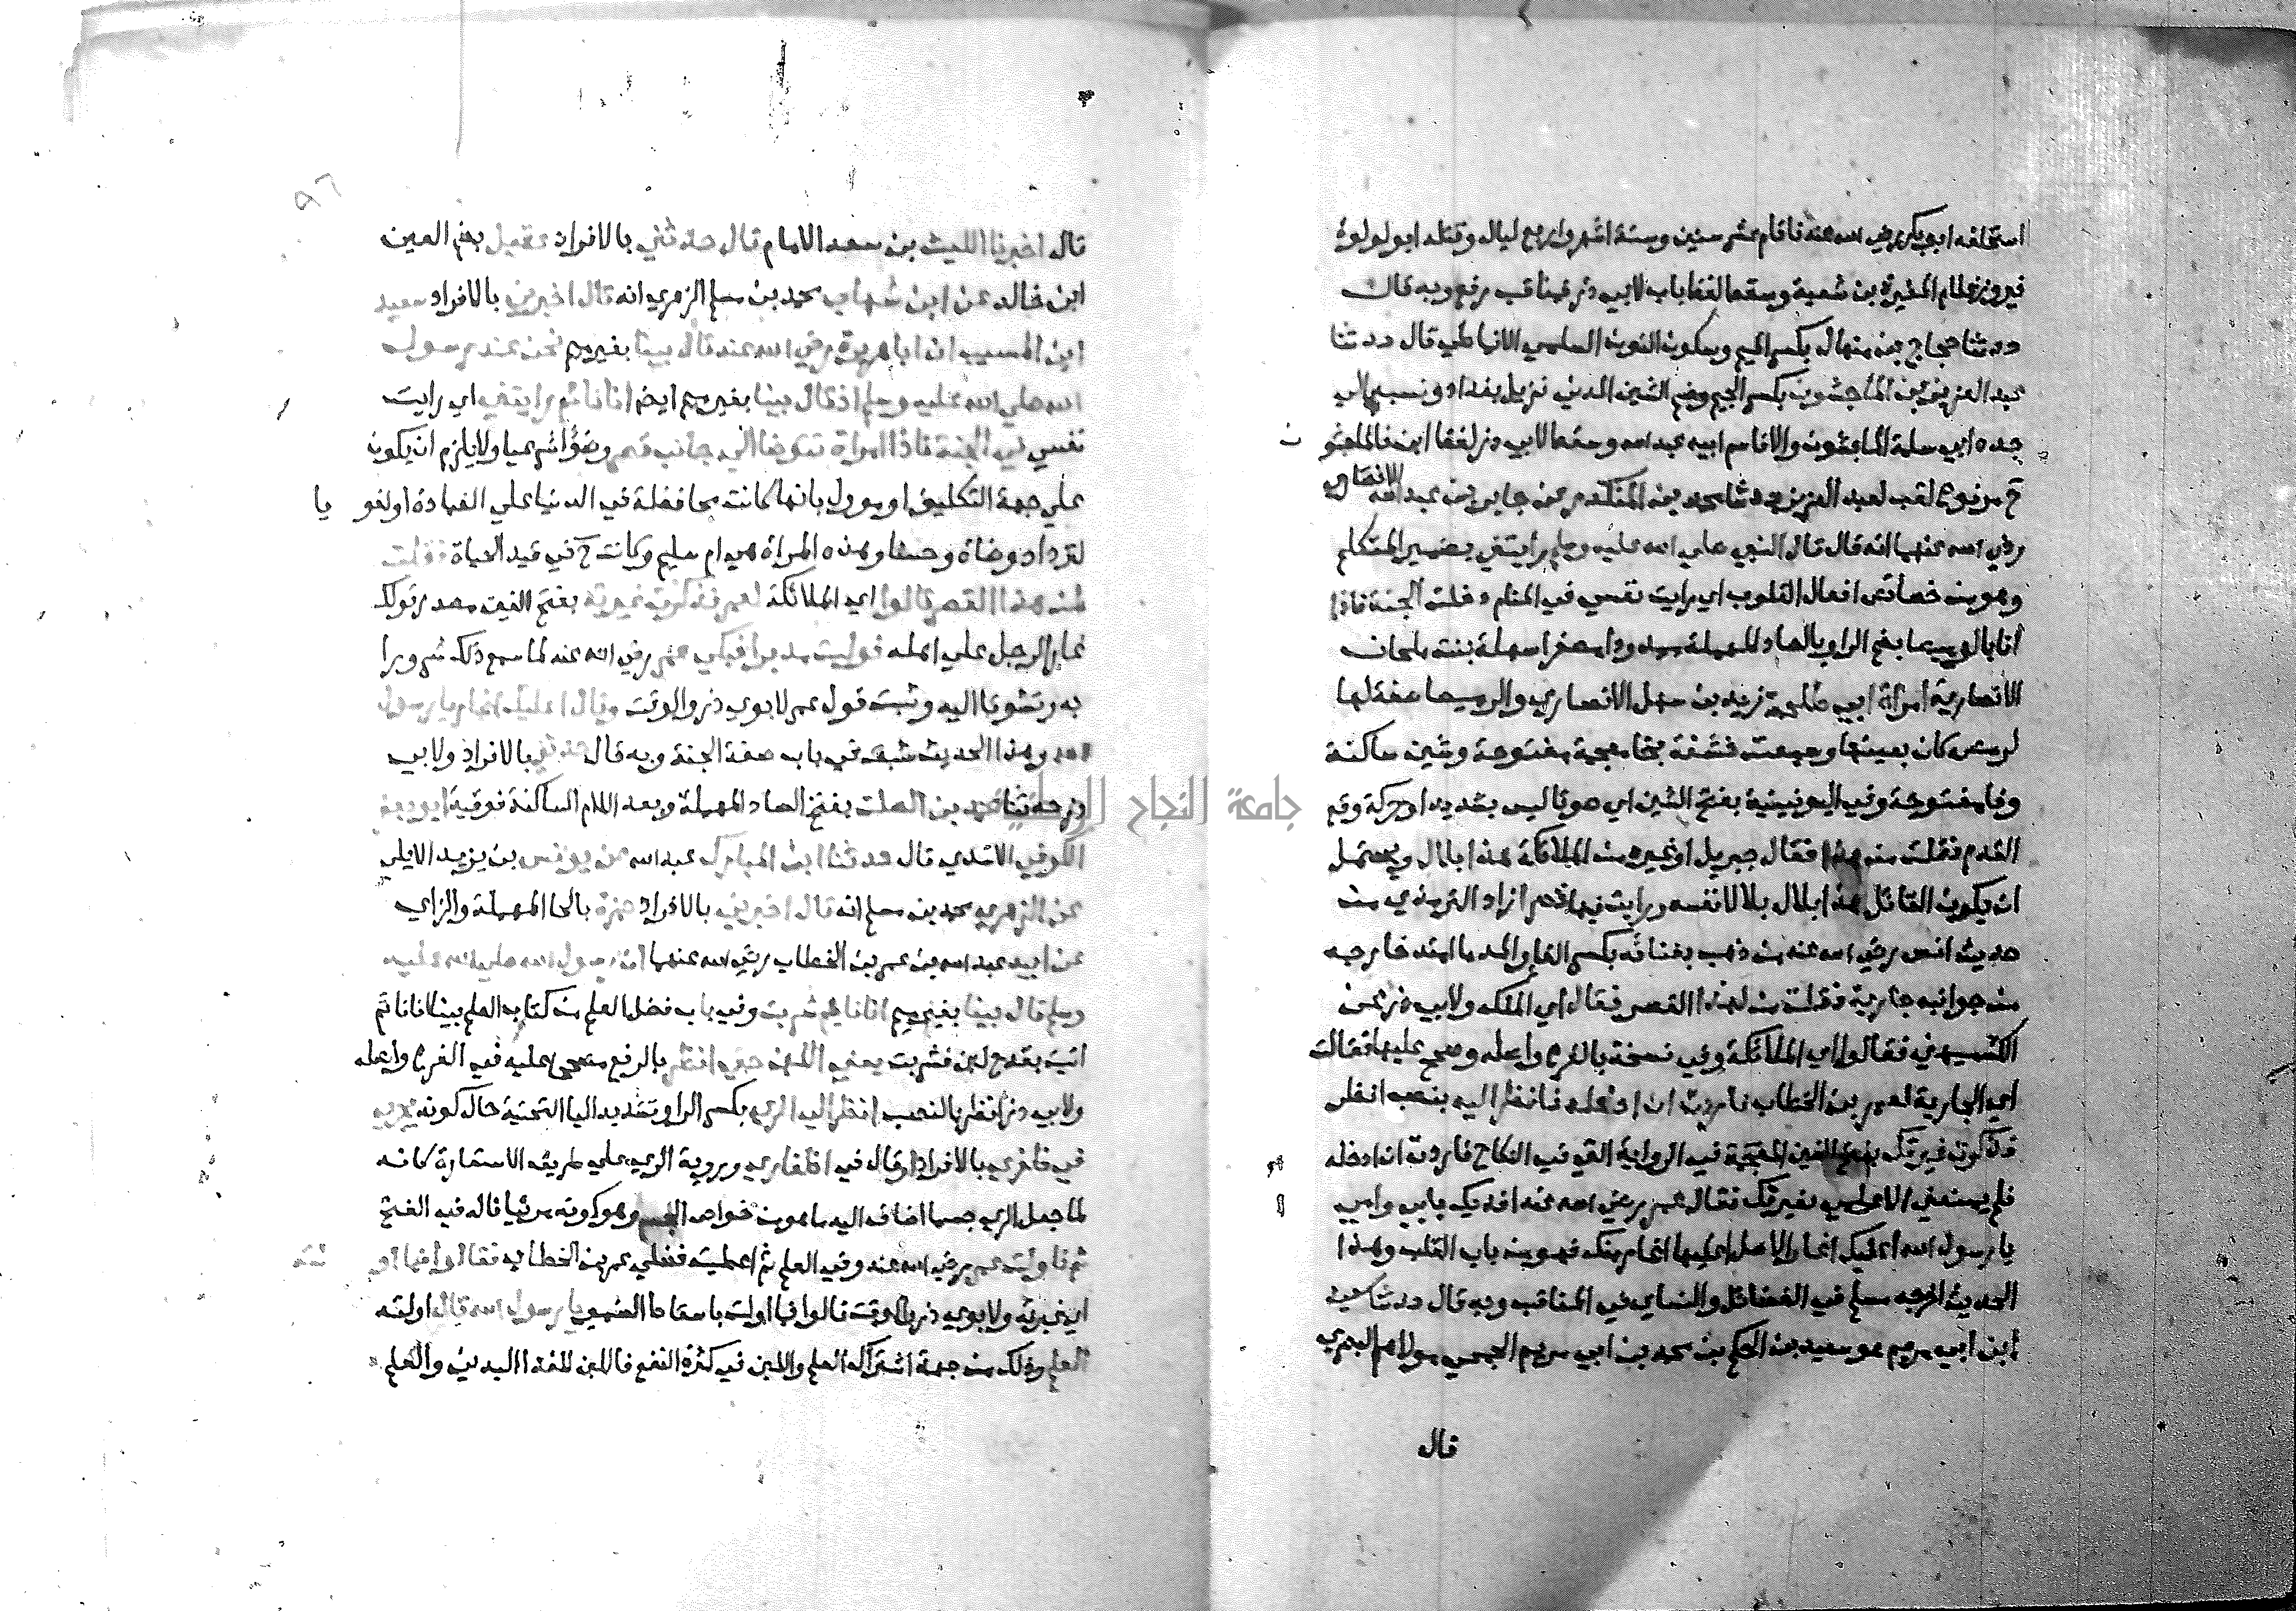 استخلفه ابو بكر رضي الله عنه فاقام عشر سنين وستة اشهر واربع ليال وقتله ابو لولوة
فيروز غلام المغيرة بن شعبة وسقط لفظ باب لابي ذر فمناقب رفع وبه قال
حدثنا حجاج بن منهال بكسر الميم وسكون النون السلمي الانماطي قال حدثنا
عبد العزيز بن الماجشون بكسر الجيم وضم الشين المدني نزيل بغداد ونسبه الي
جده ابي سلمة الماجشون والا فاسم ابيه عبد الله وسقط لابي ذر لفظ ابن فالماجشون
ح مرفوع لقب لعبد العزيز حدثنا محمد بن المنكدر عن جابر بن عبد الله الانصاري
رضي الله عنهما انه قال قال النبي صلي الله عليه وسلم رايتني بضمير المتكلم
وهو من خصائص افعال القلوب اي رايت نفسي في المنام دخلت الجنة فاذا
انا بالرميصا بضم الرا وبالصاد المهملة ممدودا مصغرا سهلة بنت ملحان
الانصارية امراة ابي طلحة زيد بن سهل الانصاري والرميصا صفة لها
لرمص كان بعينها وسمعت خشفة بخا معجمة مفتوحة وشين ساكنة
وفا مفتوحة وفي اليونينية بفتح الشين اي صوتا ليس بشديد او حركة وقع
القدم فقلت من هذا فقال جبريل او غيره من الملائكة هذا بلال ويحتمل
ان يكون القائل هذا بلال بلالا نفسه ورايت فيها قصرا زاد الترمذي من
حديث انس رضي الله عنه من ذهب بفنائه بكسر الفا والمد ما امتد خارجه
من جوانبه جارية فقلت لمن هذا القصر فقال اي الملك ولابي ذر عن
الكشميهني فقالوا اي الملائكة وفي نسخة بالفرع واصله وصحح عليها فقالت
اي الجارية لعمر بن الخطاب فاردت ان ادخله فانظر اليه بنصب انظر
فذكرت غيرتك بفتح الغين المعجمة في الرواية التي في النكاح فاردت ان ادخله
فلم يمنعني الا علمي بغيرتك فقال عمر رضي الله عنه افديك بابي وامي
يا رسول الله اعليك اغار الاصل اعليها اغار منك فهو من باب القلب وهذا
الحديث اخرجه مسلم في الفضائل والنساي في المناقب وبه قال حدثنا سعيد
ابن ابي مريم هو سعيد بن الحكم بن محمد بن ابي مريم الجمحي مولاهم البصري
قال
قال اخبرنا الليث بن سعد الامام قال حدثني بالافراد عقيل بضم العين
ابن خالد عن ابن شهاب محمد بن مسلم الزهري انه قال اخبرني بالافراد سعيد
ابن المسيب ان ابا هريرة رضي الله عنه قال بينا بغير ميم نحن عند رسول
الله صلي الله عليه وسلم اذ قال بينا بغير ميم ايضا انا نائم رايتني اي رايت
نفسي في الجنة فاذا امراة تتوضا الي جانب قصر وضوأ شرعيا ولا يلزم ان يكون
علي جهة التكليف او يوول بانها كانت محافظة في الدنيا علي العبادة او لغويا
لتزداد وضاة وحسنا وهذه المراة هي ام سليم وكانت ح في قيد الحياة فقلت
لمن هذا القصر قالوا اي الملائكة لعمر فذكرت غيرته بفتح الغين مصدر قولك
غار الرجل علي اهله فوليت مدبرا فبكي عمر رضي الله عنه لما سمع ذلك سرورا
به وتشوقا اليه وثبت قول عمر لابوي ذر والوقت وقال اعليك اغار يا رسول
الله وهذا الحديث سبق في باب صفة الجنة وبه قال حدثني بالافراد ولابي
ذر حدثنا محمد بن الصلت بفتح الصاد المهملة وبعد اللام الساكنة فوقية ابو جعفر
الكوفي الاسدي قال حدثنا ابن المبارك عبد الله عن يونس بن يزيد الايلي
عن الزهري محمد بن مسلم انه قال اخبرني بالافراد حمزة بالحا المهملة والزاي
عن ابيه عبد الله بن عمر بن الخطاب رضي الله عنهما ان رسول الله صلي الله عليه
وسلم قال بينا بغير ميم انا نائم شربت وفي باب فضل العلم من كتاب العلم بينا انا نائم
اتيت بقدح لبن فشربت يعني اللبن حتي انظر بالرفع مصححا عليه في الفرع واصله
ولابي ذر انظر بالنصب انظر الي الري بكسر الرا وتشديد اليا التحتية حال كونه يجري
في ظفري بالافراد او قال في اظفاري وروية الري علي طريق الاستعارة كانه
لما جعل الري جسما اضاف اليه ما هو من خواص الجسم وهو كونه مرئيا قاله في الفتح
ثم ناولت عمر رضي الله عنه وفي العلم ثم اعطيت فضلي عمر بن الخطاب فقالوا فما اولته
اي عبرته ولابوي ذر والوقت قالوا فما اولت باسقاط الضمير يا رسول الله قال اولته
العلم وذلك من جهة اشتراك العلم واللبن في كثرة النفع فاللبن للغذا البدني والعلم
جامعة النجاح الوطنية